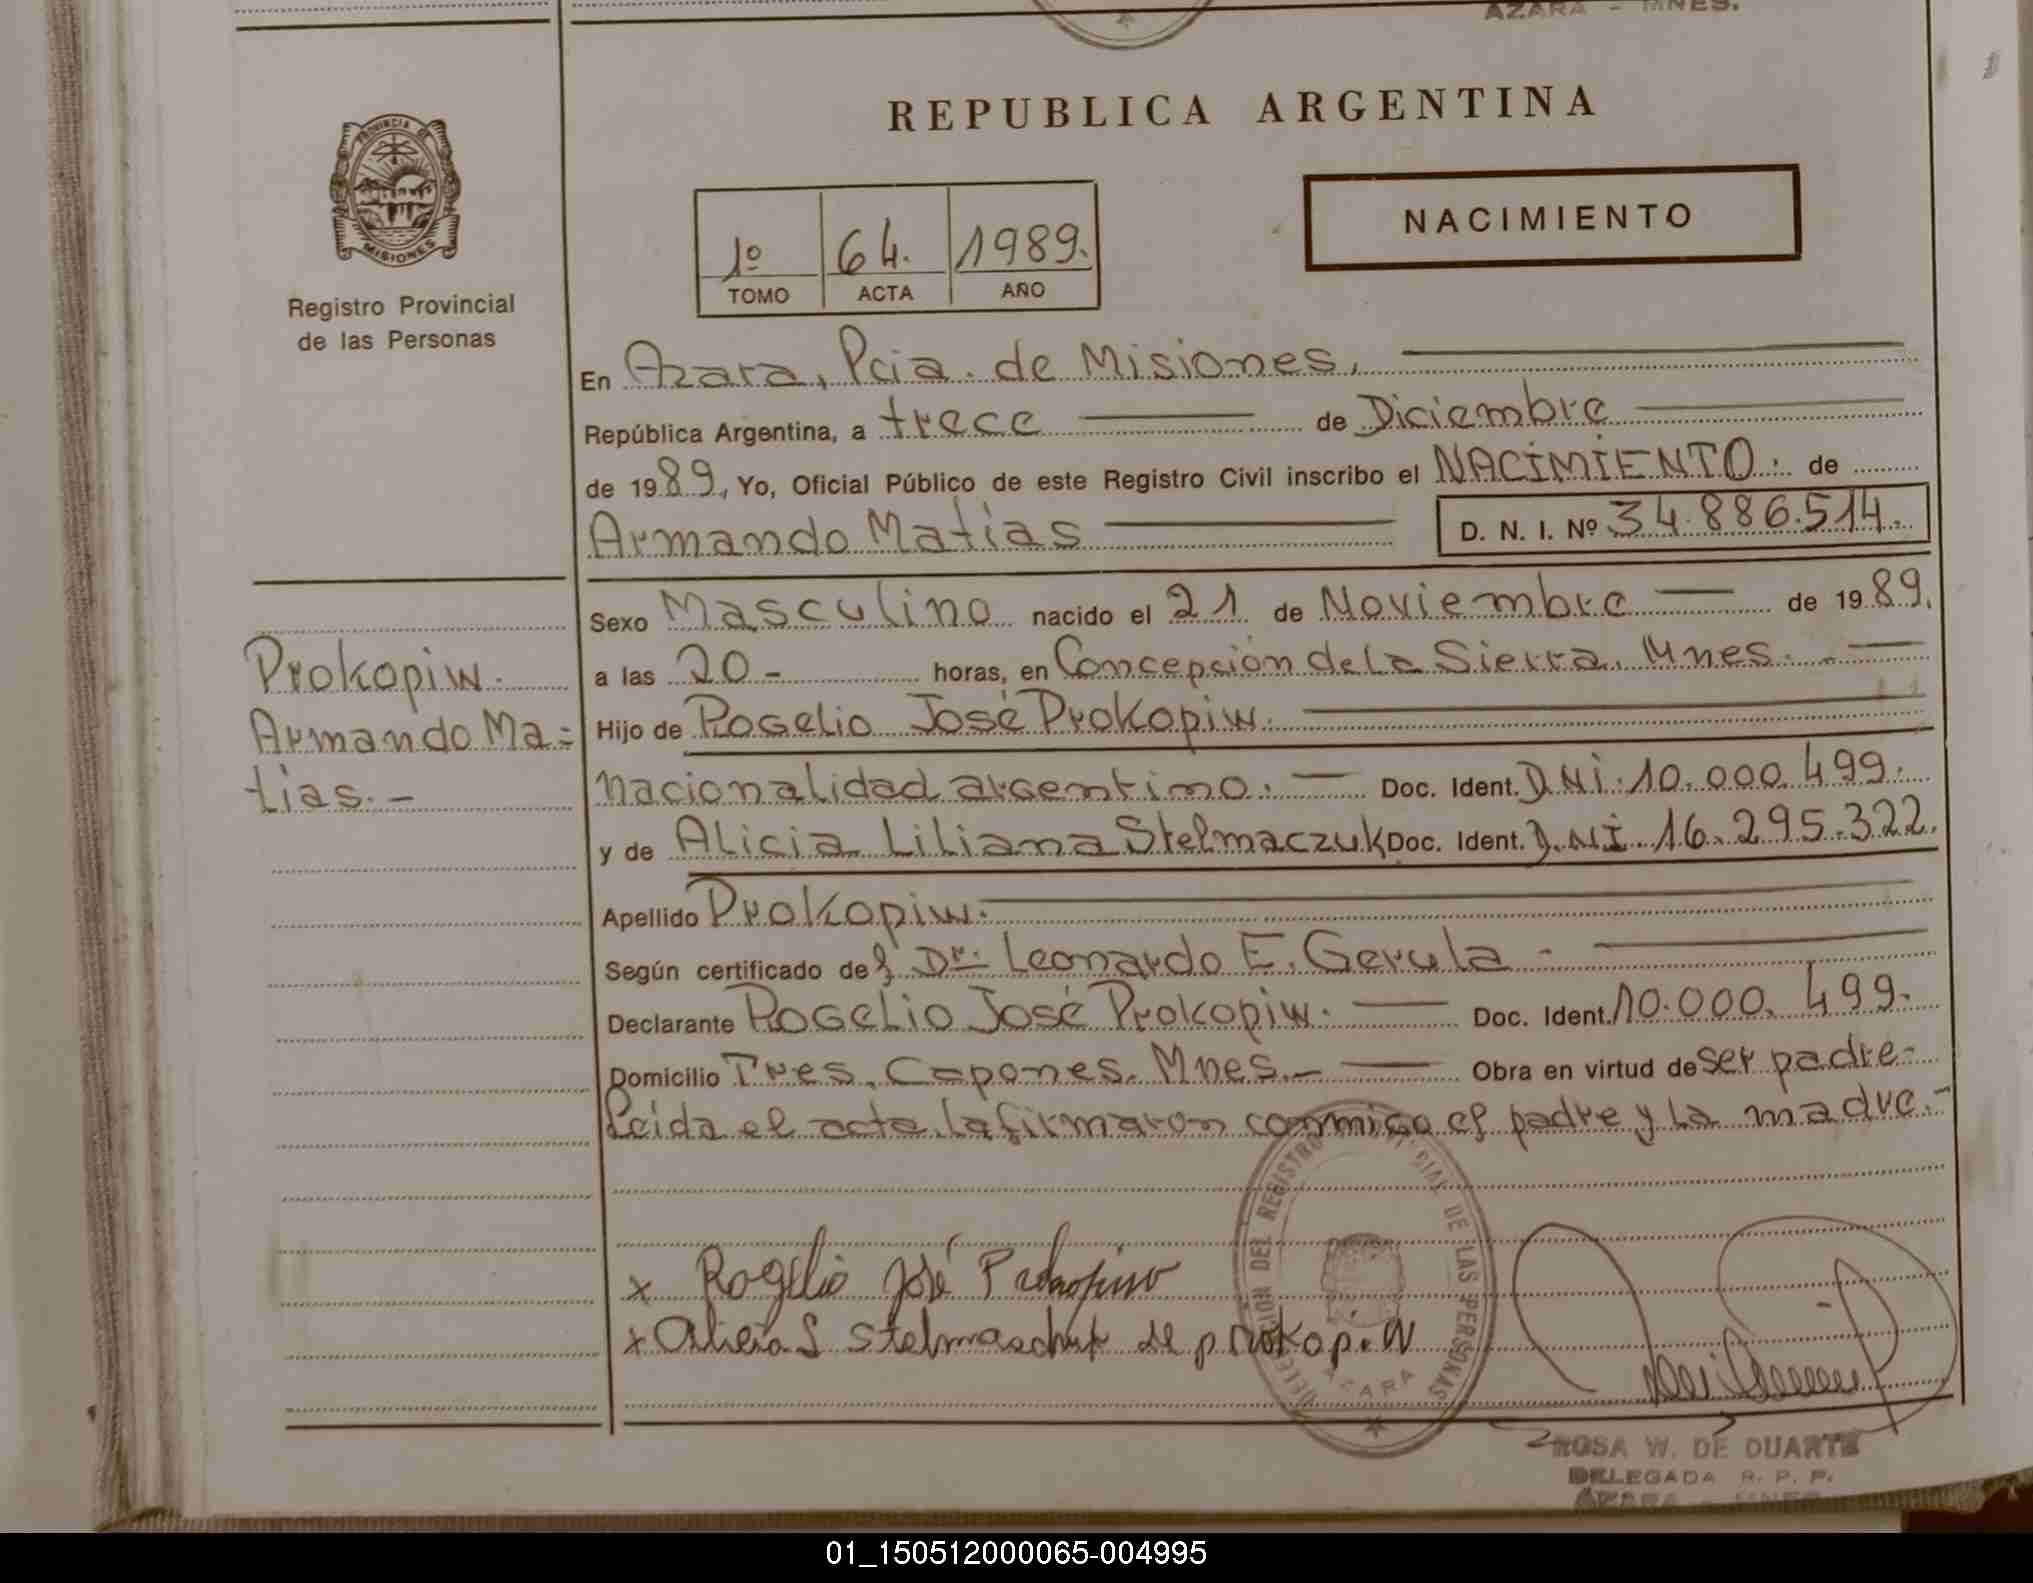 AZARA - MNES.
REPUBLICA ARGENTINA
PROVINCIA DE
MISIONES
Registro Provincial
de las Personas
1º 64. 1989.
TOMO ACTA AÑO
NACIMIENTO
En Azara, Pcia. de Misiones,
República Argentina, a trece de Diciembre
de 1989, Yo, Oficial Público de este Registro Civil inscribo el NACIMIENTO. de
Armando Matias D. N. I. Nº 34.886.514.
Sexo Masculino nacido el 21 de Noviembre de 1989.
a las 20- horas, en Concepción de la Sierra. Mnes.
Hijo de Rogelio José Prokopiw.
nacionalidad argentino. Doc. Ident. D.NI. 10.000.499.
y de Alicia Liliana Stelmaczuk Doc. Ident. D.NI. 16.295.322.
Apellido Prokopiw.
Según certificado del Dr. Leonardo E. Gerula -
Declarante Rogelio José Prokopiw. Doc. Ident. 10.000.499.
Domicilio Tres Capones. Mnes.- Obra en virtud de ser padre-
Leida el acta, la firmaron conmigo el padre y la madre.-
Prokopiw.
Armando Ma=
tias.-
x Rogelio José Prokopiw
x Alicia L Stelmaschuk de prokopiw
DELEGACION DEL REGISTRO PROVINCIAL DE LAS PERSONAS
AZARA
ROSA W. DE DUARTE
DELEGADA R. P. P.
AZARA - MNES.
01_150512000065-004995